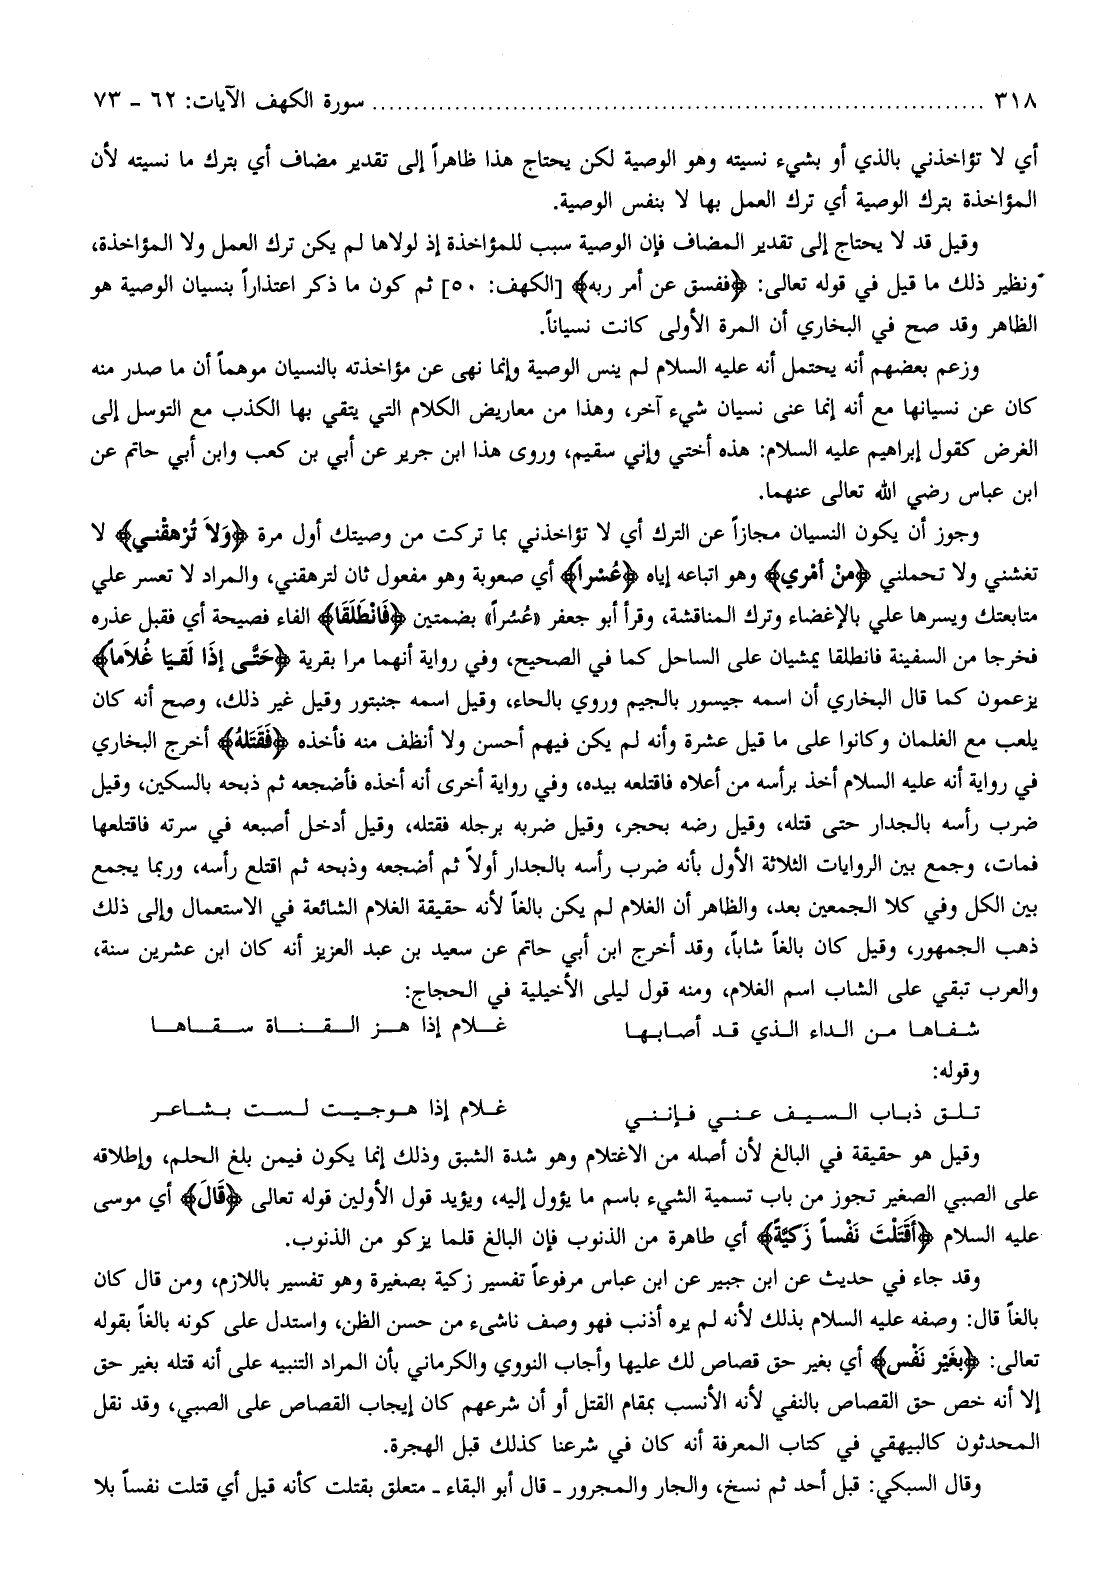 ٣١٨ ........................................................................ سورة الكهف الآيات: ٦٢ ـ ٧٣
أي لا تؤاخذني بالذي أو بشيء نسيته وهو الوصية لكن يحتاج هذا ظاهراً إلى تقدير مضاف أي بترك ما نسيته لأن
المؤاخذة بترك الوصية أي ترك العمل بها لا بنفس الوصية.
وقيل قد لا يحتاج إلى تقدير المضاف فإن الوصية سبب للمؤاخذة إذ لولاها لم يكن ترك العمل ولا المؤاخذة،
ونظير ذلك ما قيل في قوله تعالى: ﴿ففسق عن أمر ربه﴾ [الكهف: ٥٠] ثم كون ما ذكر اعتذاراً بنسيان الوصية هو
الظاهر وقد صح في البخاري أن المرة الأولى كانت نسياناً.
وزعم بعضهم أنه يحتمل أنه عليه السلام لم ينس الوصية وإنما نهى عن مؤاخذته بالنسيان موهماً أن ما صدر منه
كان عن نسيانها مع أنه إنما عنى نسيان شيء آخر، وهذا من معاريض الكلام التي يتقي بها الكذب مع التوسل إلى
الغرض كقول إبراهيم عليه السلام: هذه أختي وإني سقيم، وروى هذا ابن جرير عن أبي بن كعب وابن أبي حاتم عن
ابن عباس رضي الله تعالى عنهما.
وجوز أن يكون النسيان مجازاً عن الترك أي لا تؤاخذني بما تركت من وصيتك أول مرة ﴿وَلاَ تُرْهقْني﴾ لا
تغشني ولا تحملني ﴿مِنْ أمْري﴾ وهو اتباعه إياه ﴿عُسْراً﴾ أي صعوبة وهو مفعول ثان لترهقني، والمراد لا تعسر علي
متابعتك ويسرها علي بالإغضاء وترك المناقشة، وقرأ أبو جعفر «عُسُراً» بضمتين ﴿فَانْطَلَقَا﴾ الفاء فصيحة أي فقبل عذره
فخرجا من السفينة فانطلقا يمشيان على الساحل كما في الصحيح، وفي رواية أنهما مرا بقرية ﴿حَتَّى إذَا لَقيَا غُلاَماً﴾
يزعمون كما قال البخاري أن اسمه جيسور بالجيم وروي بالحاء، وقيل اسمه جنبتور وقيل غير ذلك، وصح أنه كان
يلعب مع الغلمان وكانوا على ما قيل عشرة وأنه لم يكن فيهم أحسن ولا أنظف منه فأخذه ﴿فَقَتَلهُ﴾ أخرج البخاري
في رواية أنه عليه السلام أخذ برأسه من أعلاه فاقتلعه بيده، وفي رواية أخرى أنه أخذه فأضجعه ثم ذبحه بالسكين، وقيل
ضرب رأسه بالجدار حتى قتله، وقيل رضه بحجر، وقيل ضربه برجله فقتله، وقيل أدخل أصبعه في سرته فاقتلعها
فمات، وجمع بين الروايات الثلاثة الأول بأنه ضرب رأسه بالجدار أولاً ثم أضجعه وذبحه ثم اقتلع رأسه، وربما يجمع
بين الكل وفي كلا الجمعين بعد، والظاهر أن الغلام لم يكن بالغاً لأنه حقيقة الغلام الشائعة في الاستعمال وإلى ذلك
ذهب الجمهور، وقيل كان بالغاً شاباً، وقد أخرج ابن أبي حاتم عن سعيد بن عبد العزيز أنه كان ابن عشرين سنة،
والعرب تبقي على الشاب اسم الغلام، ومنه قول ليلى الأخيلية في الحجاج:
شفاها من الداء الذي قد أصابها غلام إذا هز القناة سقاها
وقوله:
تلق ذباب السيف عني فإنني غلام إذا هوجيت لست بشاعر
وقيل هو حقيقة في البالغ لأن أصله من الاغتلام وهو شدة الشبق وذلك إنما يكون فيمن بلغ الحلم، وإطلاقه
على الصبي الصغير تجوز من باب تسمية الشيء باسم ما يؤول إليه، ويؤيد قول الأولين قوله تعالى ﴿قَالَ﴾ أي موسى
عليه السلام ﴿أَقَتَلْتَ نَفْساً زَكيَّةً﴾ أي طاهرة من الذنوب فإن البالغ قلما يزكو من الذنوب.
وقد جاء في حديث عن ابن جبير عن ابن عباس مرفوعاً تفسير زكية بصغيرة وهو تفسير باللازم، ومن قال كان
بالغاً قال: وصفه عليه السلام بذلك لأنه لم يره أذنب فهو وصف ناشىء من حسن الظن، واستدل على كونه بالغاً بقوله
تعالى: ﴿بغَيْر نَفْس﴾ أي بغير حق قصاص لك عليها وأجاب النووي والكرماني بأن المراد التنبيه على أنه قتله بغير حق
إلا أنه خص حق القصاص بالنفي لأنه الأنسب بمقام القتل أو أن شرعهم كان إيجاب القصاص على الصبي، وقد نقل
المحدثون كالبيهقي في كتاب المعرفة أنه كان في شرعنا كذلك قبل الهجرة.
وقال السبكي: قبل أحد ثم نسخ، والجار والمجرور ـ قال أبو البقاء ـ متعلق بقتلت كأنه قيل أي قتلت نفساً بلا